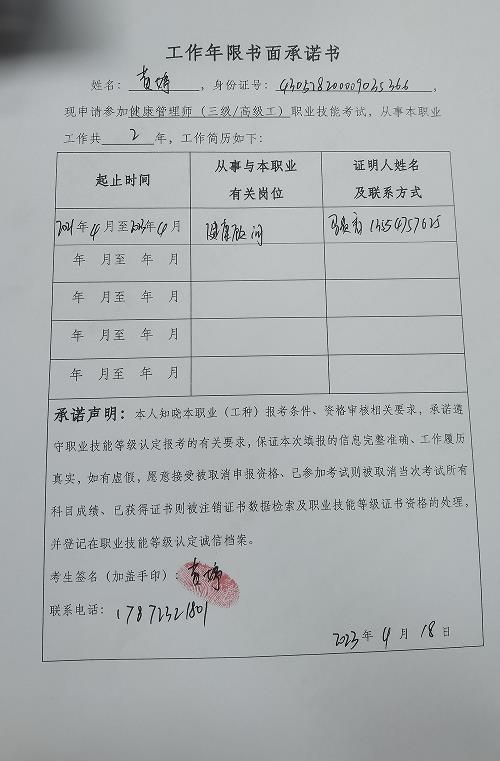 工作年限书面承诺书
姓名：，身份证号：，
现申请参加健康管理师（三级/高级工）职业技能考试，从事本职业
工作共2年，工作简历如下：
起止时间 从事与本职业有关岗位 证明人姓名及联系方式
2021年4月至2023年4月 健康顾问
年 月至 年 月
年 月至 年 月
年 月至 年 月
年 月至 年 月
承诺声明：本人知晓本职业（工种）报考条件、资格审核相关要求，承诺遵
守职业技能等级认定报考的有关要求，保证本次填报的信息完整准确、工作履历
真实，如有虚假，愿意接受被取消申报资格、已参加考试则被取消当次考试所有
科目成绩、已获得证书则被注销证书数据检索及职业技能等级证书资格的处理，
并登记在职业技能等级认定诚信档案。
考生签名（加盖手印）：
联系电话：17872321801
2023年4月18日